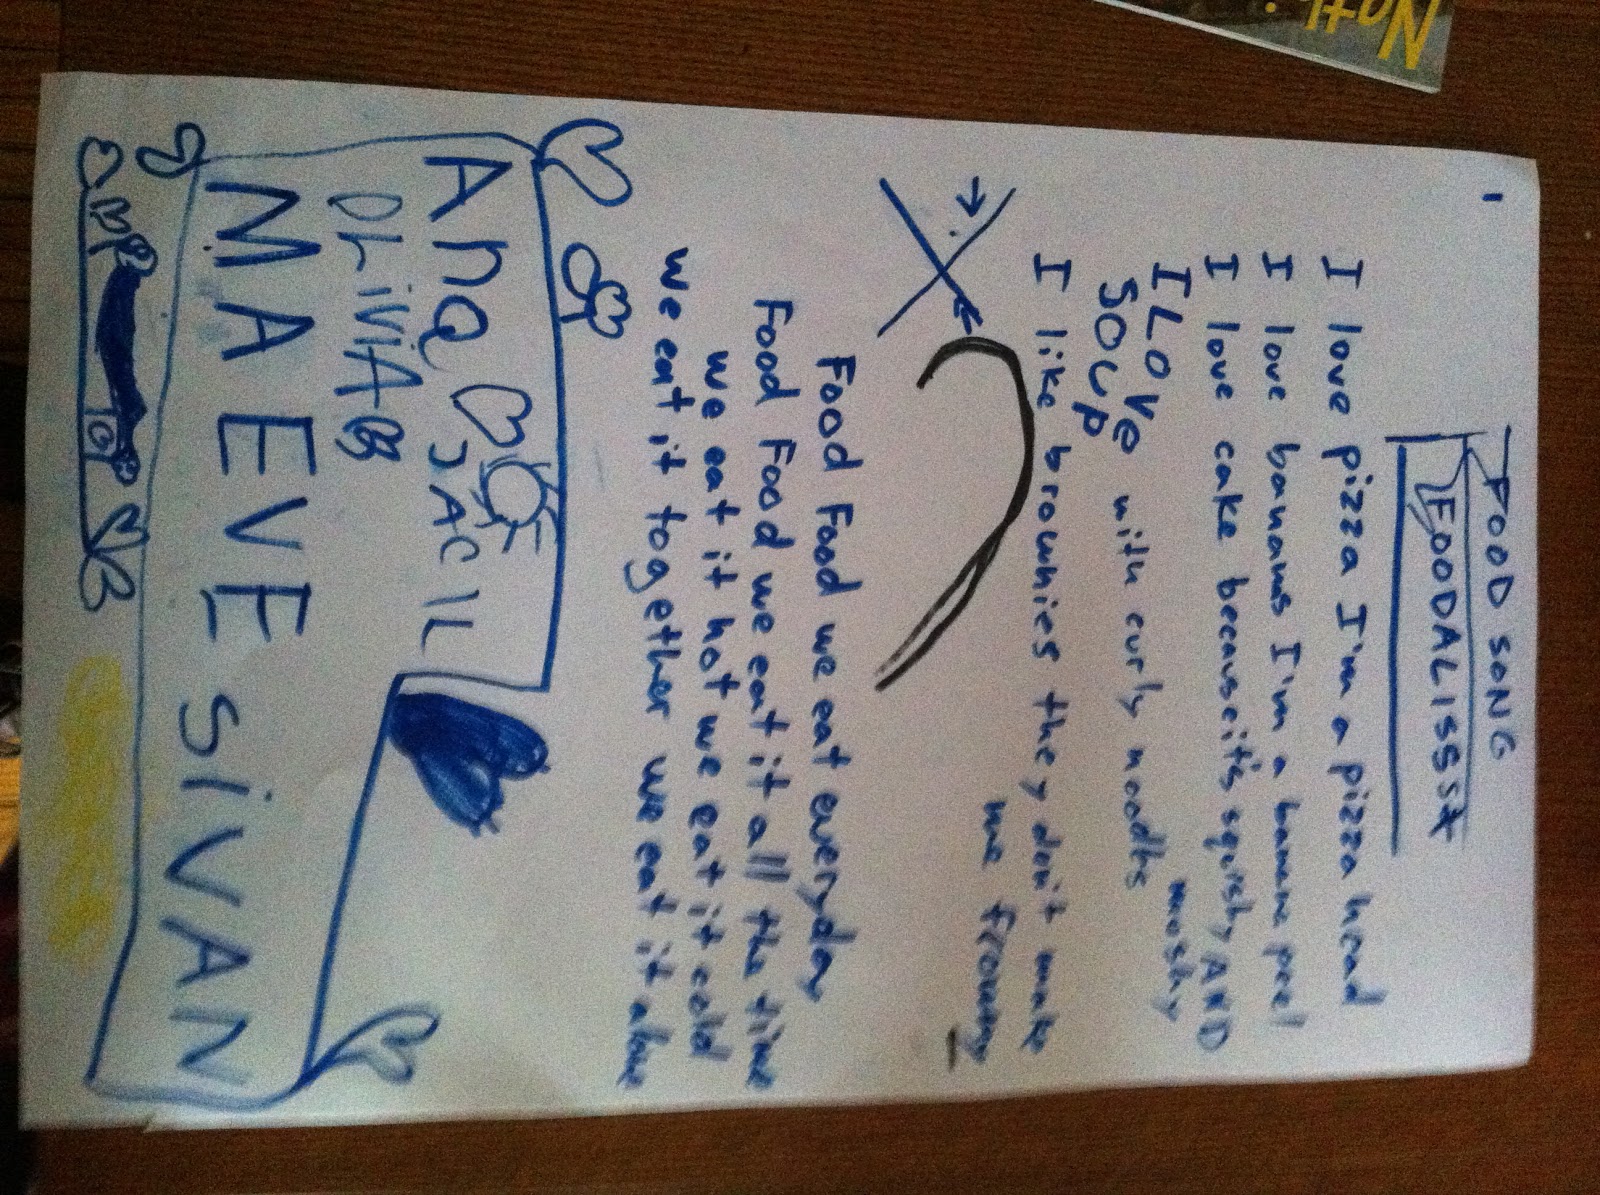 FOOD SONG
FOODALISSST
I love pizza I'm a pizza head
I love banans I'm a banana peel
I love cake because it's squishy AND
mushy
I LOVE with curly noodles
SOUP
I like brownies they don't make
me frowny
Food Food we eat everyday
Food Food we eat it all the time
we eat it hot we eat it cold
we eat it together we eat it alone
AnQ
JACIL
OLiViA
MAEVE SiVAN
TO